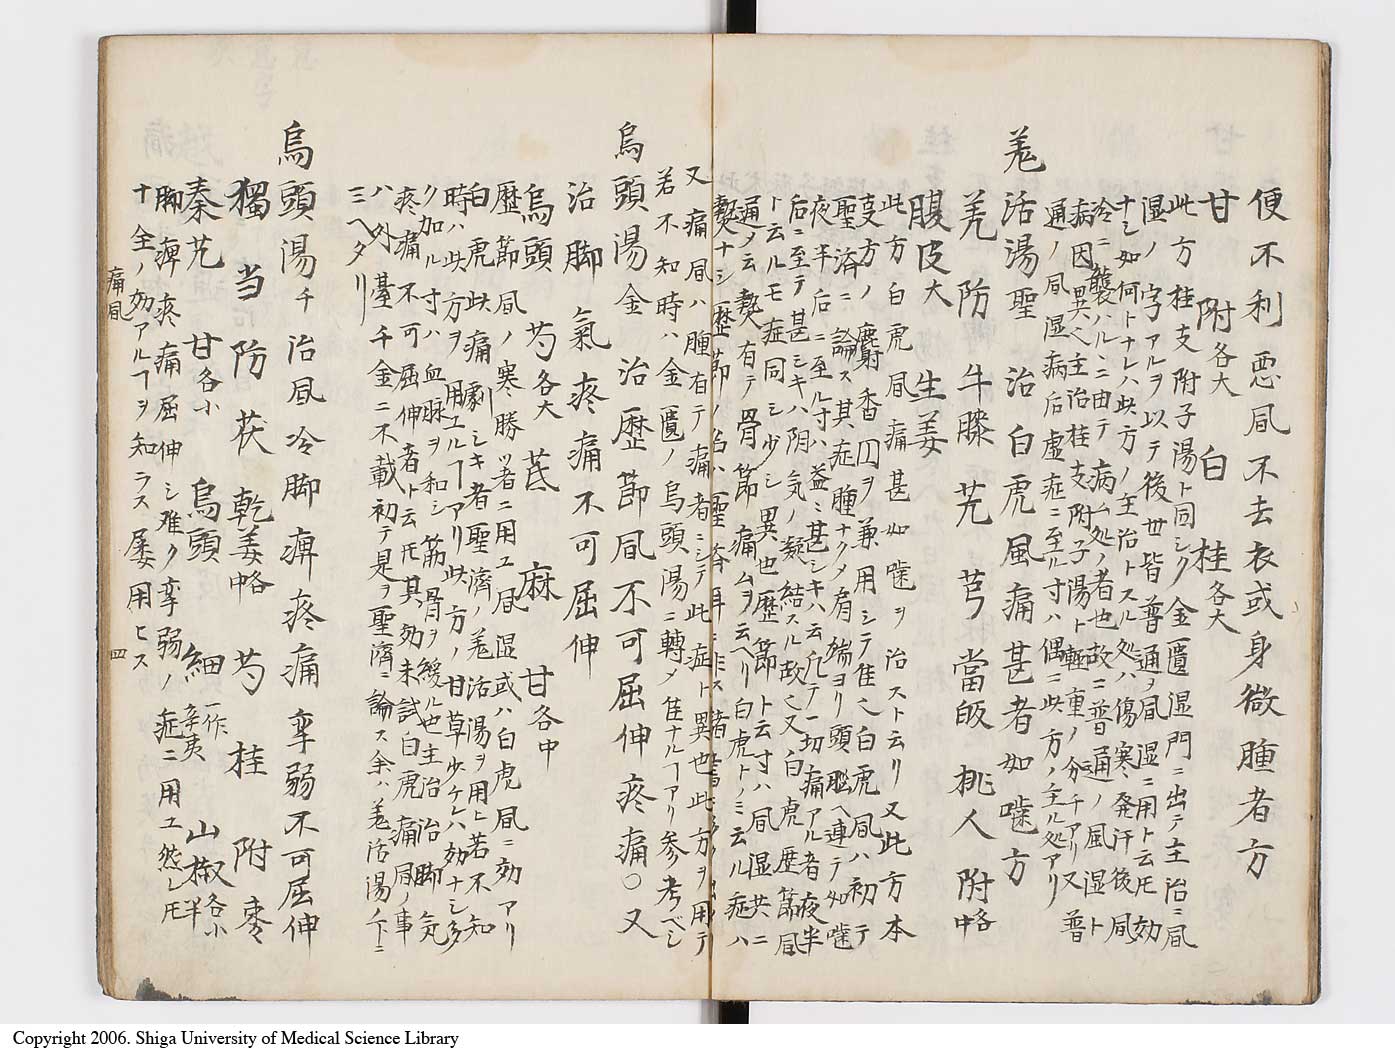 便不利悪凨不去衣或身微腫者方
甘 附各大 白 桂各大
此方桂支附子湯ト同シク金匱湿門ニ出テ主治ニ凨
湿ノ字アルヲ以テ後世皆普通ヲ凨湿ニ用ト云𪜈効
十シ如何トナレハ此方ノ主治トスル処ハ傷寒発汗後凨
冷ニ襲ハルヽニ由テ病ム処ノ者也故ニ普通ノ風湿ト
病因異ヘ主治桂支附子湯ト軽重ノ分チアリ又普
通ノ凨湿病后虚症ニ至ル寸ハ偶ニ此方ノ主ル処アリ
羗活湯聖 治白虎風痛甚者如噛方
羗 防 牛膝 芃 芎 當皈 桃人 附略
腹皮大 生姜
此方白虎凨痛甚如噛ヲ治スト云リ又此方本
支方ノ麝香囚ヲ兼用シテ佳也白虎凨ハ初テ
聖済ニ論ス其症腫ナクメ肩端ヨリ頭𦚾ヘ連テ如噛
夜半后ニ至ル寸ハ益ニ甚シキハ云凡テ一切痛アル者夜半
后ニ至テ甚シキハ阴気ノ凝結スル故也又白虎歴節凨
ト云ルモ症同シ少シ異也歴節ト云寸ハ凨湿共ニ
通メ云𤍠有テ骨節痛ムヲ云ヘリ白虎トノミ云ル症ハ
又痛凨ハ腫有テ痛者ニシテ此症ト異也此方ヲ用テ
若不知時ハ金匱ノ烏頭湯ニ轉メ佳ナルヿアリ参考ベシ
烏頭湯金 治歴節凨不可屈伸疼痛〇又
治脚氣疼痛不可屈伸
烏頭 芍各大 茋 麻 甘各中
歴節凨ノ寒勝ツ者ニ用ユ凨湿或ハ白虎凨ニ効アリ
白虎此痛劇シキ者聖濟ノ羗活湯ヲ用ヒ若不知
時ハ此方ヲ用ユルヿアリ此方ノ甘草少ケレハ効ナシ多
ク加ル寸ハ血脉ヲ和シ筋骨ヲ緩ル也主治治脚気
疼痛不可屈伸者ト云𪜈其効未試白虎痛凨ノ事
ハ外臺千金ニ不載初テ是ヲ聖濟ニ論ス余ハ羗活湯ノ下ニ
ミヘタリ
烏頭湯千 治凨冷脚痺疼痛孿弱不可屈伸
獨 当 防 茯 乾姜略 芍 桂 附 枣
秦艽 甘各小 烏頭 細一作辛夷 山椒各小半
脚痺疼痛屈伸シ难ク孪弱ノ症ニ用ユ然レ𪜈
十全ノ効アルヿヲ知ラス屡用ヒス
痛凨 四